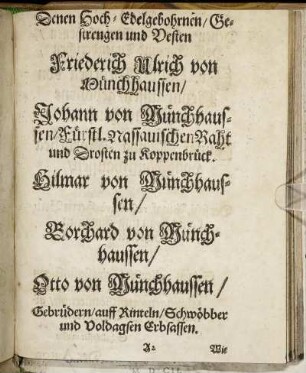 Denen Hoch-Edelgebohrnen/Ge-
strengen und Vesten
Friederich Ulrich von
Münchhaussen/
Johann von Münchhaus-
sen/Fürstl. Nassauischen Raht
und Drosten zu Koppenbrück.
Hilmar von Münchhaus-
sen/
Borchard von Münch-
haussen/
Otto von Münchhaussen/
Gebrüdern/auff Rinteln/Schwöbber
und Voldagsen Erbsassen.
A2 Wie